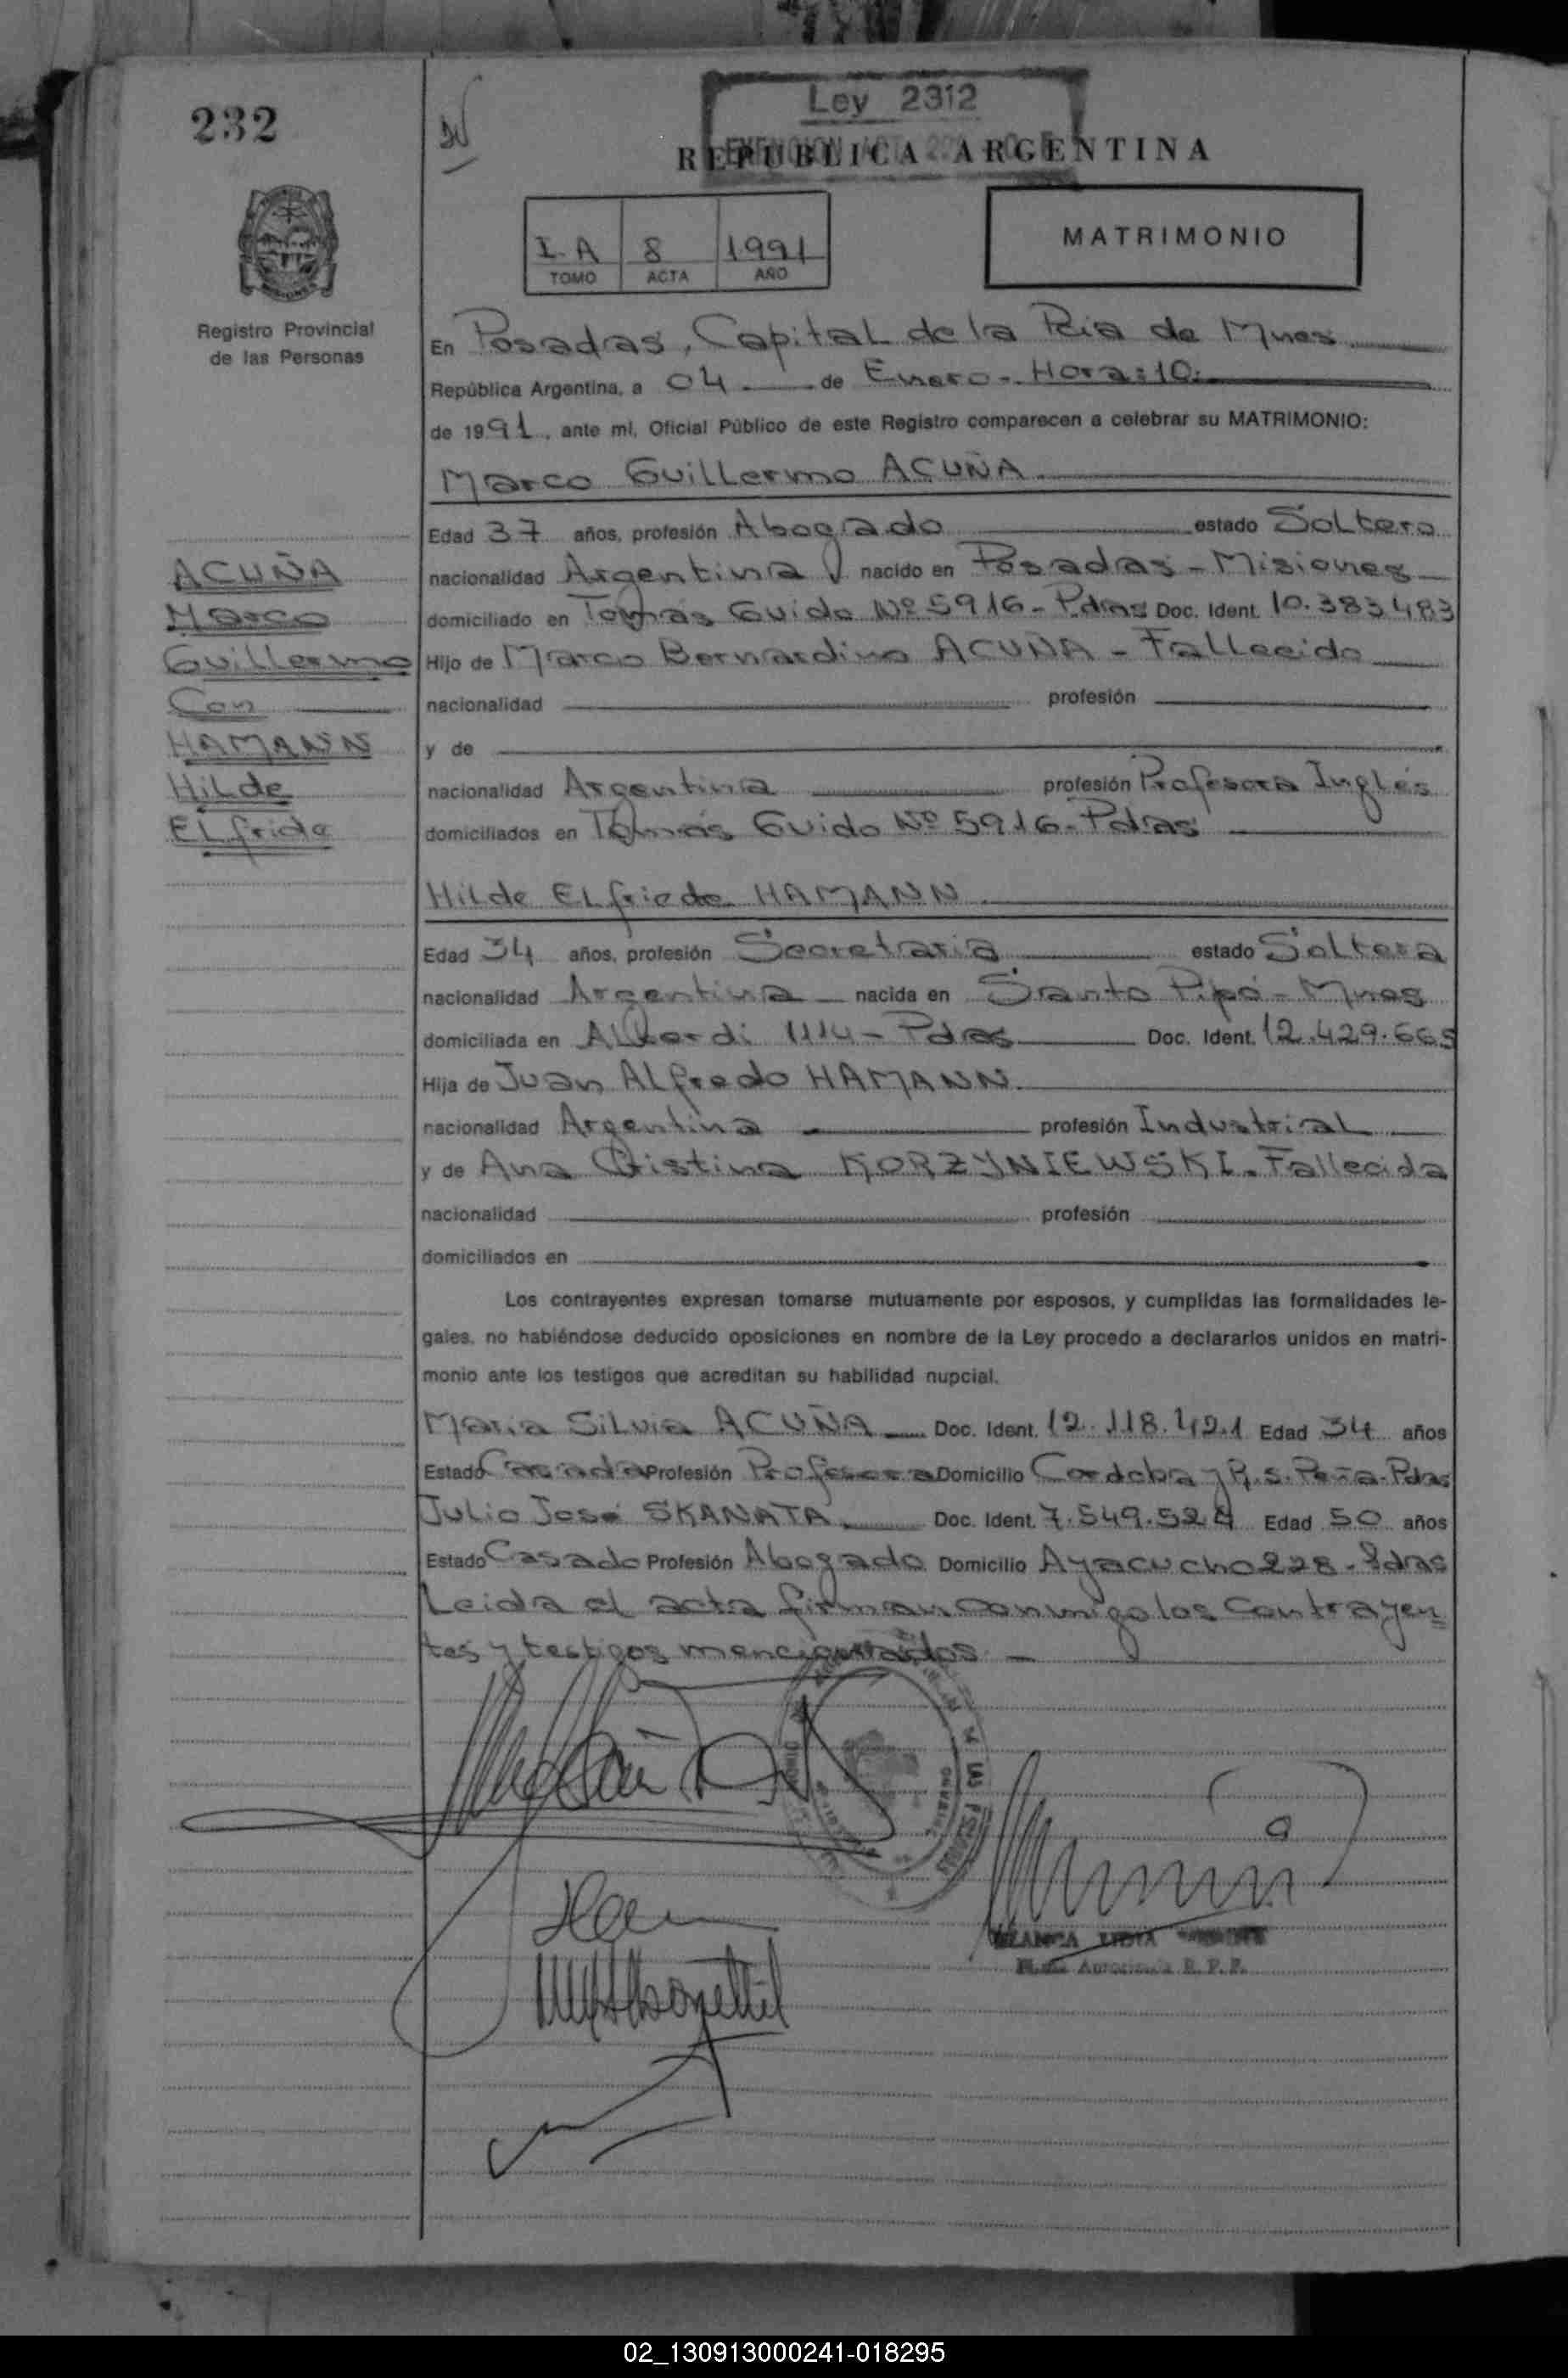 232
Ley 2312
REPUBLICA ARGENTINA
I-A 8 1991
TOMO ACTA AÑO
MATRIMONIO
Registro Provincial
de las Personas
En Posadas, Capital de la Pcia de Mnes
República Argentina, a 04 de Enero - Hora: 10:
de 1991, ante mí, Oficial Público de este Registro comparecen a celebrar su MATRIMONIO:
Marco Guillermo ACUÑA
Edad 37 años, profesión Abogado estado Soltero
nacionalidad Argentina nacido en Posadas - Misiones
domiciliado en Tomás Guido Nº 5916 - Pdas Doc. Ident. 10.383.483
Hijo de Marco Bernardino ACUÑA - Fallecido
nacionalidad profesión
y de
nacionalidad Argentina profesión Profesora Inglés
domiciliados en Tomás Guido Nº 5916 - Pdas
ACUÑA
Marco
Guillermo
Con
HAMANN
Hilde
ELfride
Hilde ELfriede HAMANN
Edad 34 años, profesión Secretaria estado Soltera
nacionalidad Argentina nacida en Santo Pipó - Mnes
domiciliada en Alberdi 1114 - Pdas Doc. Ident. 12.429.665
Hija de Juan Alfredo HAMANN
nacionalidad Argentina profesión Industrial
y de Ana Cristina KORZYNIEWSKI - Fallecida
nacionalidad profesión
domiciliados en
Los contrayentes expresan tomarse mutuamente por esposos, y cumplidas las formalidades le-
gales, no habiéndose deducido oposiciones en nombre de la Ley procedo a declararlos unidos en matri-
monio ante los testigos que acreditan su habilidad nupcial.
Maria Silvia ACUÑA Doc. Ident. 12.118.421 Edad 34 años
Estado Casada Profesión Profesora Domicilio Cordoba y R. S. Peña - Pdas
Julio José SKANATA Doc. Ident. 7.549.524 Edad 50 años
Estado Casado Profesión Abogado Domicilio Ayacucho 228 - Pdas
Leida el acta firman conmigo los contrayen
tes y testigos mencionados
BLANCA LIDIA
R. P. P.
02_130913000241-018295